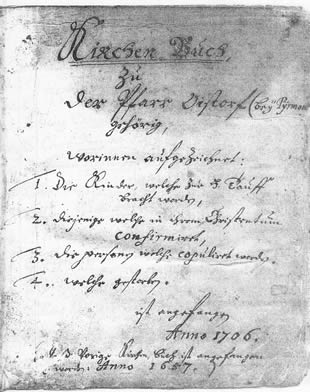 Kirchen Buch,
Zu
Der Pfarr Oistorf (bey Pyrmont
gehörig,
worinnen aufgezeichnet:
1. Die Kinder, welche zur H. Tauff
bracht worden,
2. diejenige welche in ihrem Christentum
confirmiret,
3. die personen welche copuliret worden.
4. welche gestorben.
ist angefangen
Anno 1706.
Vorige Kirchen Buch ist angefangen
worden Anno 1657.